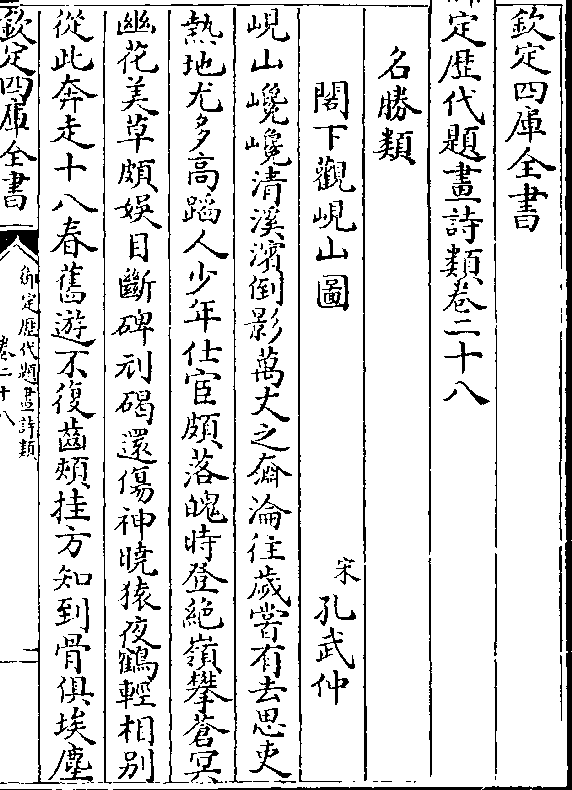 欽定四庫全書
御定歴代題畫詩類卷二十八
名勝類
閣下觀峴山圖 宋 孔武仲
峴山巉巉清溪濱倒影萬丈之奫淪往歳嘗有去思吏
熱地尤多高蹈人少年仕宦頗落魄時登絶嶺攀蒼冥
幽花美草頗娱目斷碑刓碣還傷神曉猿夜鶴輕相别
從此奔走十八春舊遊不復齒頰挂方知到骨俱埃塵
欽定四庫全書
御定歴代題畫詩類
卷二十八
一